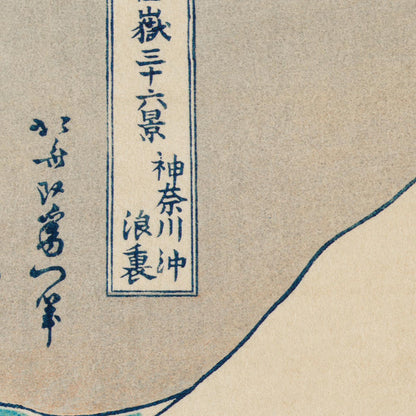 嶽三十六景
神奈川沖
浪裏
改爲一筆